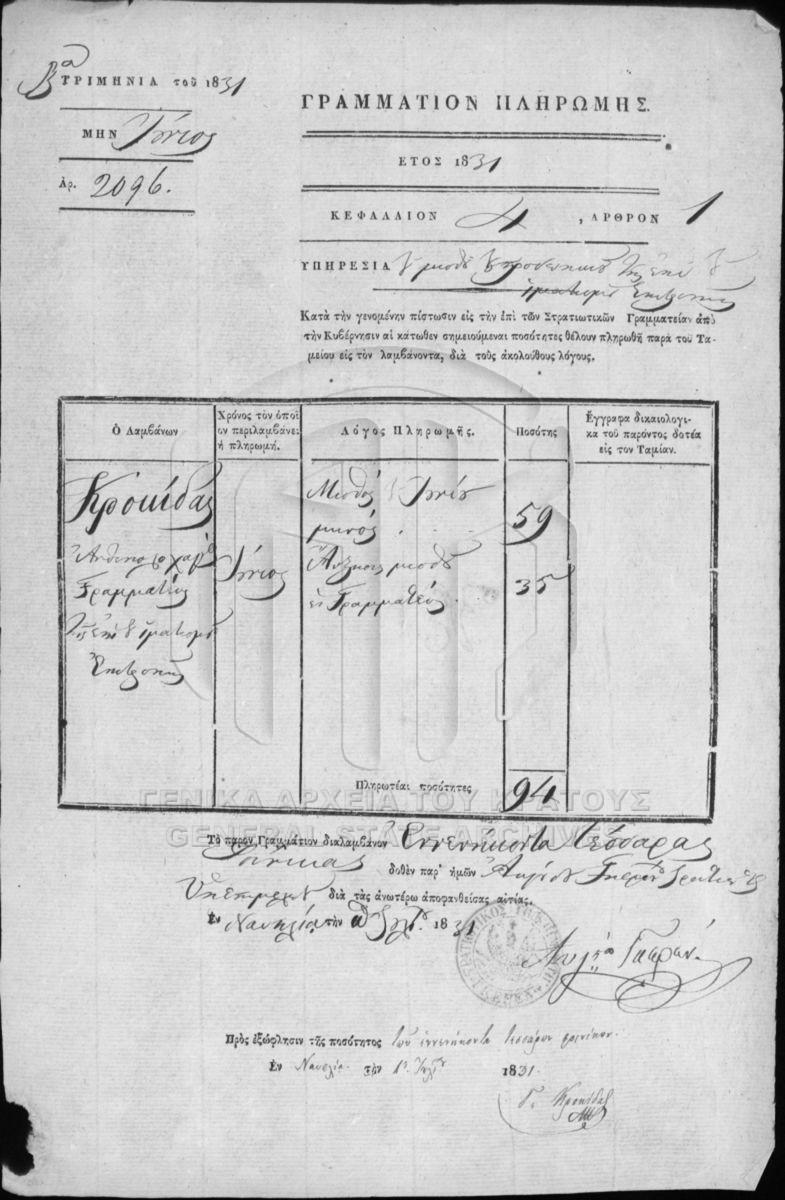 Βα ΤΡΙΜΗΝΙΑ τοῦ 1831
ΜΗΝ Ἰούνιος
Ἀρ. 2096.
ΓΡΑΜΜΑΤΙΟΝ ΠΛΗΡΩΜΗΣ.
ΕΤΟΣ 1831
ΚΕΦΑΛΑΙΟΝ 4 , ΑΡΘΡΟΝ 1
ΥΠΗΡΕΣΙΑ
ἱματισμοῦ Ἐπιτροπῆς
Κατὰ τὴν γενομένην πίστωσιν εἰς τὴν ἐπὶ τῶν Στρατιωτικῶν Γραμματείαν ἀπὸ
τὴν Κυβέρνησιν αἱ κάτωθεν σημειούμεναι ποσότητες θέλουν πληρωθῆ παρὰ τοῦ Τα-
μείου εἰς τὸν λαμβάνοντα, διὰ τοὺς ἀκολούθους λόγους.
Ὁ Λαμβάνων
Χρόνος τὸν ὁποῖ
ον περιλαμβάνει
ἡ πληρωμή.
Λόγος Πληρωμῆς.
Ποσότης
Ἔγγραφα δικαιολογι-
κα τοῦ παρόντος δοτέα
εἰς τον Ταμίαν.
Κροκίδας
Γραμματεὺς
τῆς ἐπὶ τοῦ ἱματισμοῦ
Ἐπιτροπῆς
Ἰούνιος
Μισθὸς τοῦ Ἰουνίου
μηνός . . .
59
Αὔξησις μισθοῦ
Γραμματέως .
35
Πληρωτέαι ποσότητες
94
ΓΕΝΙΚΑ ΑΡΧΕΙΑ ΤΟΥ ΚΡΑΤΟΥΣ
GENERAL STATE ARCHIVES
Τὸ παρον Γραμμάτιον διαλαμβάνον Ἐννενήκοντα τέσσαρας
Φοίνικας δοθὲν παρ' ἡμῶν
διὰ τὰς ἀνωτέρω ἀποφανθείσας αἰτίας.
Ἐν Ναυπλίᾳ τὴν 1831
Πρὸς ἐξώφλησιν τῆς ποσότητος τῶν ἐννενήκοντα τεσσάρων φοινίκων.
Ἐν Ναυπλίᾳ τὴν 1831.
Κροκίδας